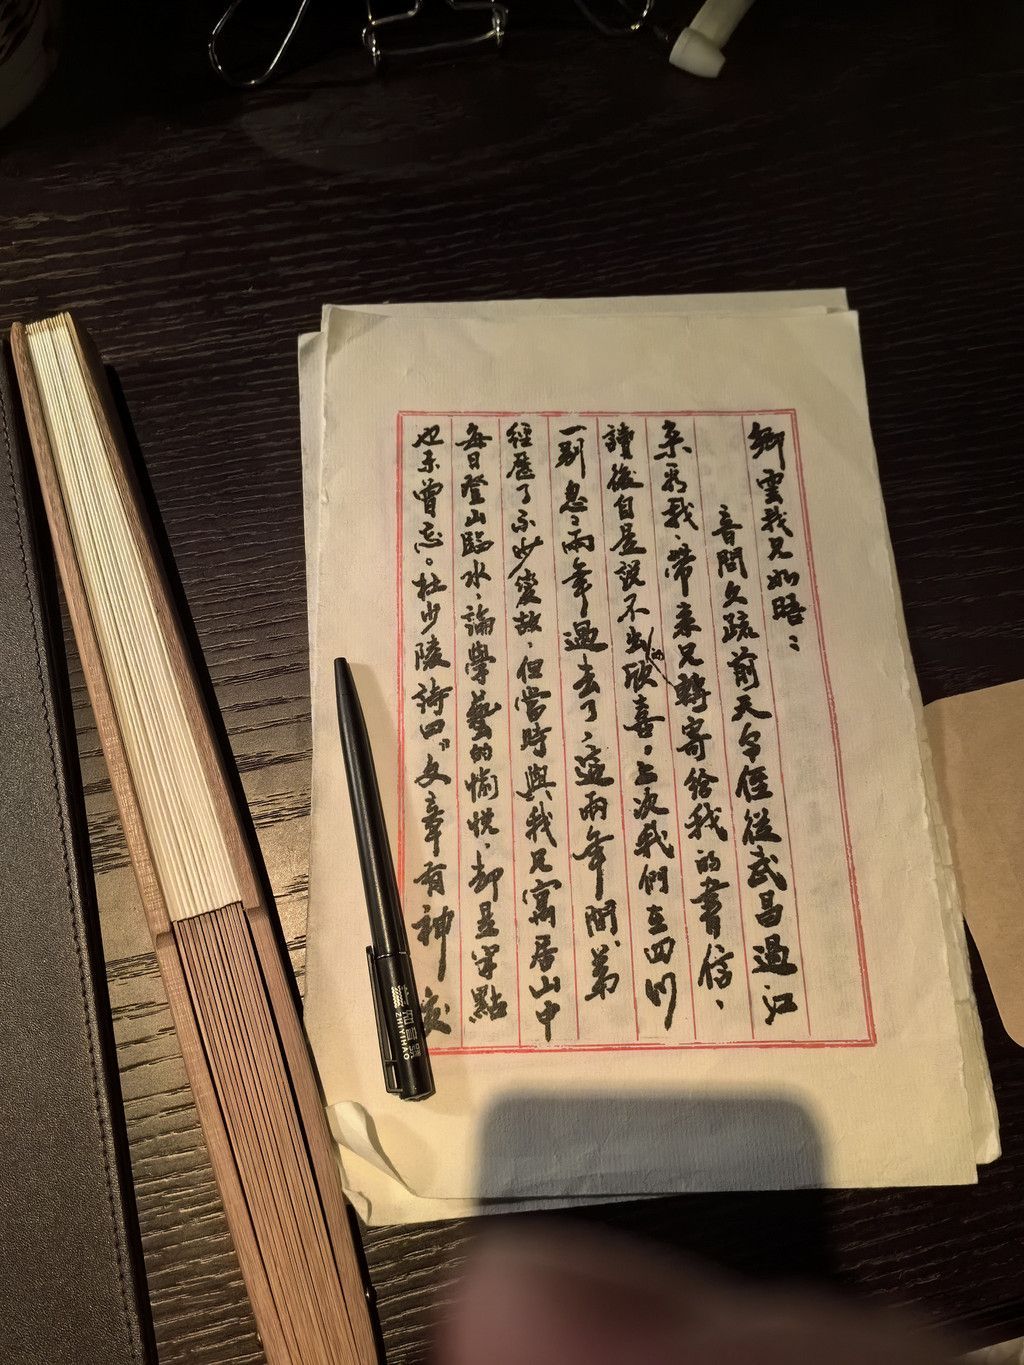 卿雲我兄如晤：
音問久疏前天令侄從武昌過江
來看我、帶來兄轉寄給我的書信、
讀後自是說不出的欣喜。上次我們在四川
一別忽忽兩年過去了、這兩年間、弟
經歷了不少變故、但當時與我兄寓居山中
每日登山臨水、論學藝的愉悅、却是半點
也未曾忘。杜少陵詩曰“文章有神交
ZHIYIHAO